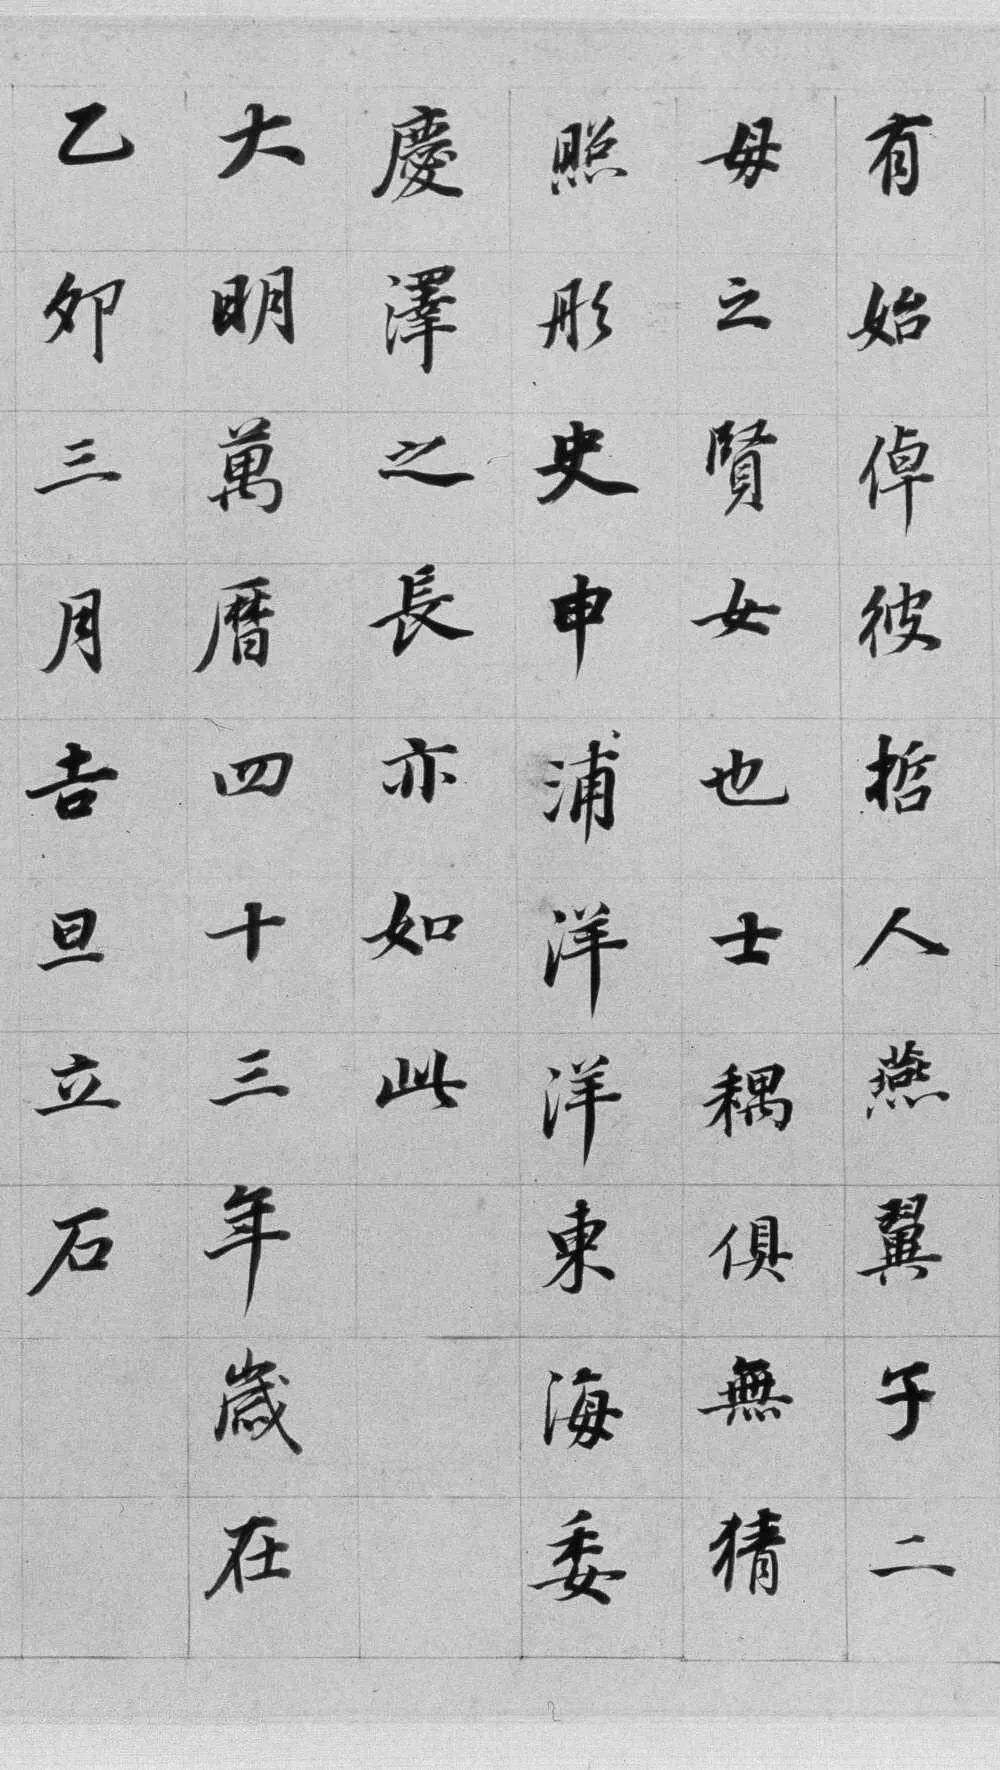 有始倬彼哲人燕翼子二
母之賢女也士耦俱無猜
照彤史申浦洋洋東海委
慶澤之長亦如此
大明萬曆四十三年歲在
乙卯三月吉旦立石